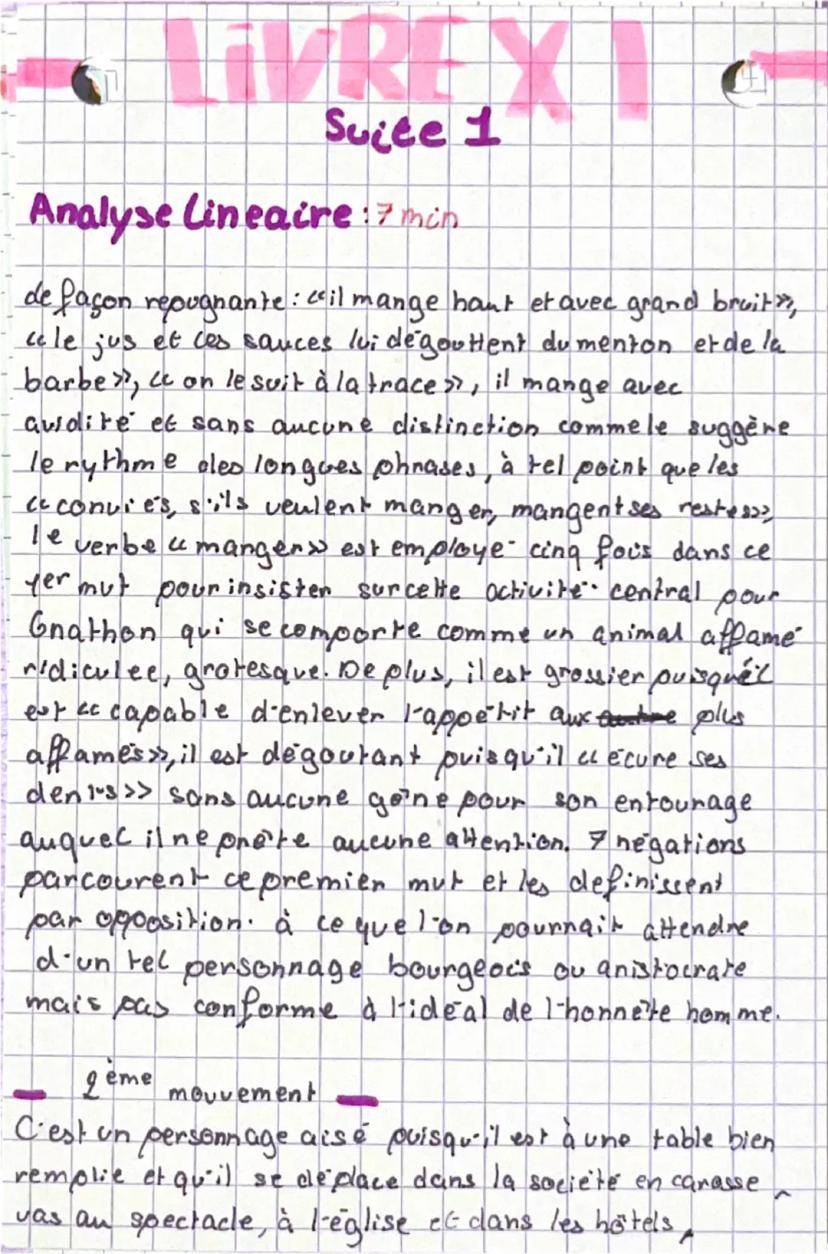 LIVRE XI
Suite 1
Analyse Lineaire : 7 min
de façon repugnante : «il mange haut et avec grand bruit»,
«le jus et les sauces lui dégouttent du menton et de la
barbe», «on le suit à la trace», il mange avec
avidité et sans aucune distinction comme le suggère
le rythme des longues phrases, à tel point que les
«conviés, s'ils veulent manger, mangent ses restes»,
le verbe «manger» est employé cinq fois dans ce
1er mvt pour insister sur cette activité central pour
Gnathon qui se comporte comme un animal affamé
ridiculee, grotesque. De plus, il est grossier puisqu'il
est «capable d'enlever l'appétit aux plus
affamés», il est dégoutant puisqu'il «écure ses
dents» sans aucune gêne pour son entourage
auquel il ne prête aucune attention. 7 négations
parcourent ce premier mvt et les definissent
par opposition. à ce que l'on pourrait attendre
d'un tel personnage bourgeois ou aristocrate
mais pas conforme à l'idéal de l'honnête homme.
2ème mouvement
C'est un personnage aisé puisqu'il est à une table bien
remplie et qu'il se déplace dans la société en carasse
vas au spectacle, à l'église et dans les hôtels,